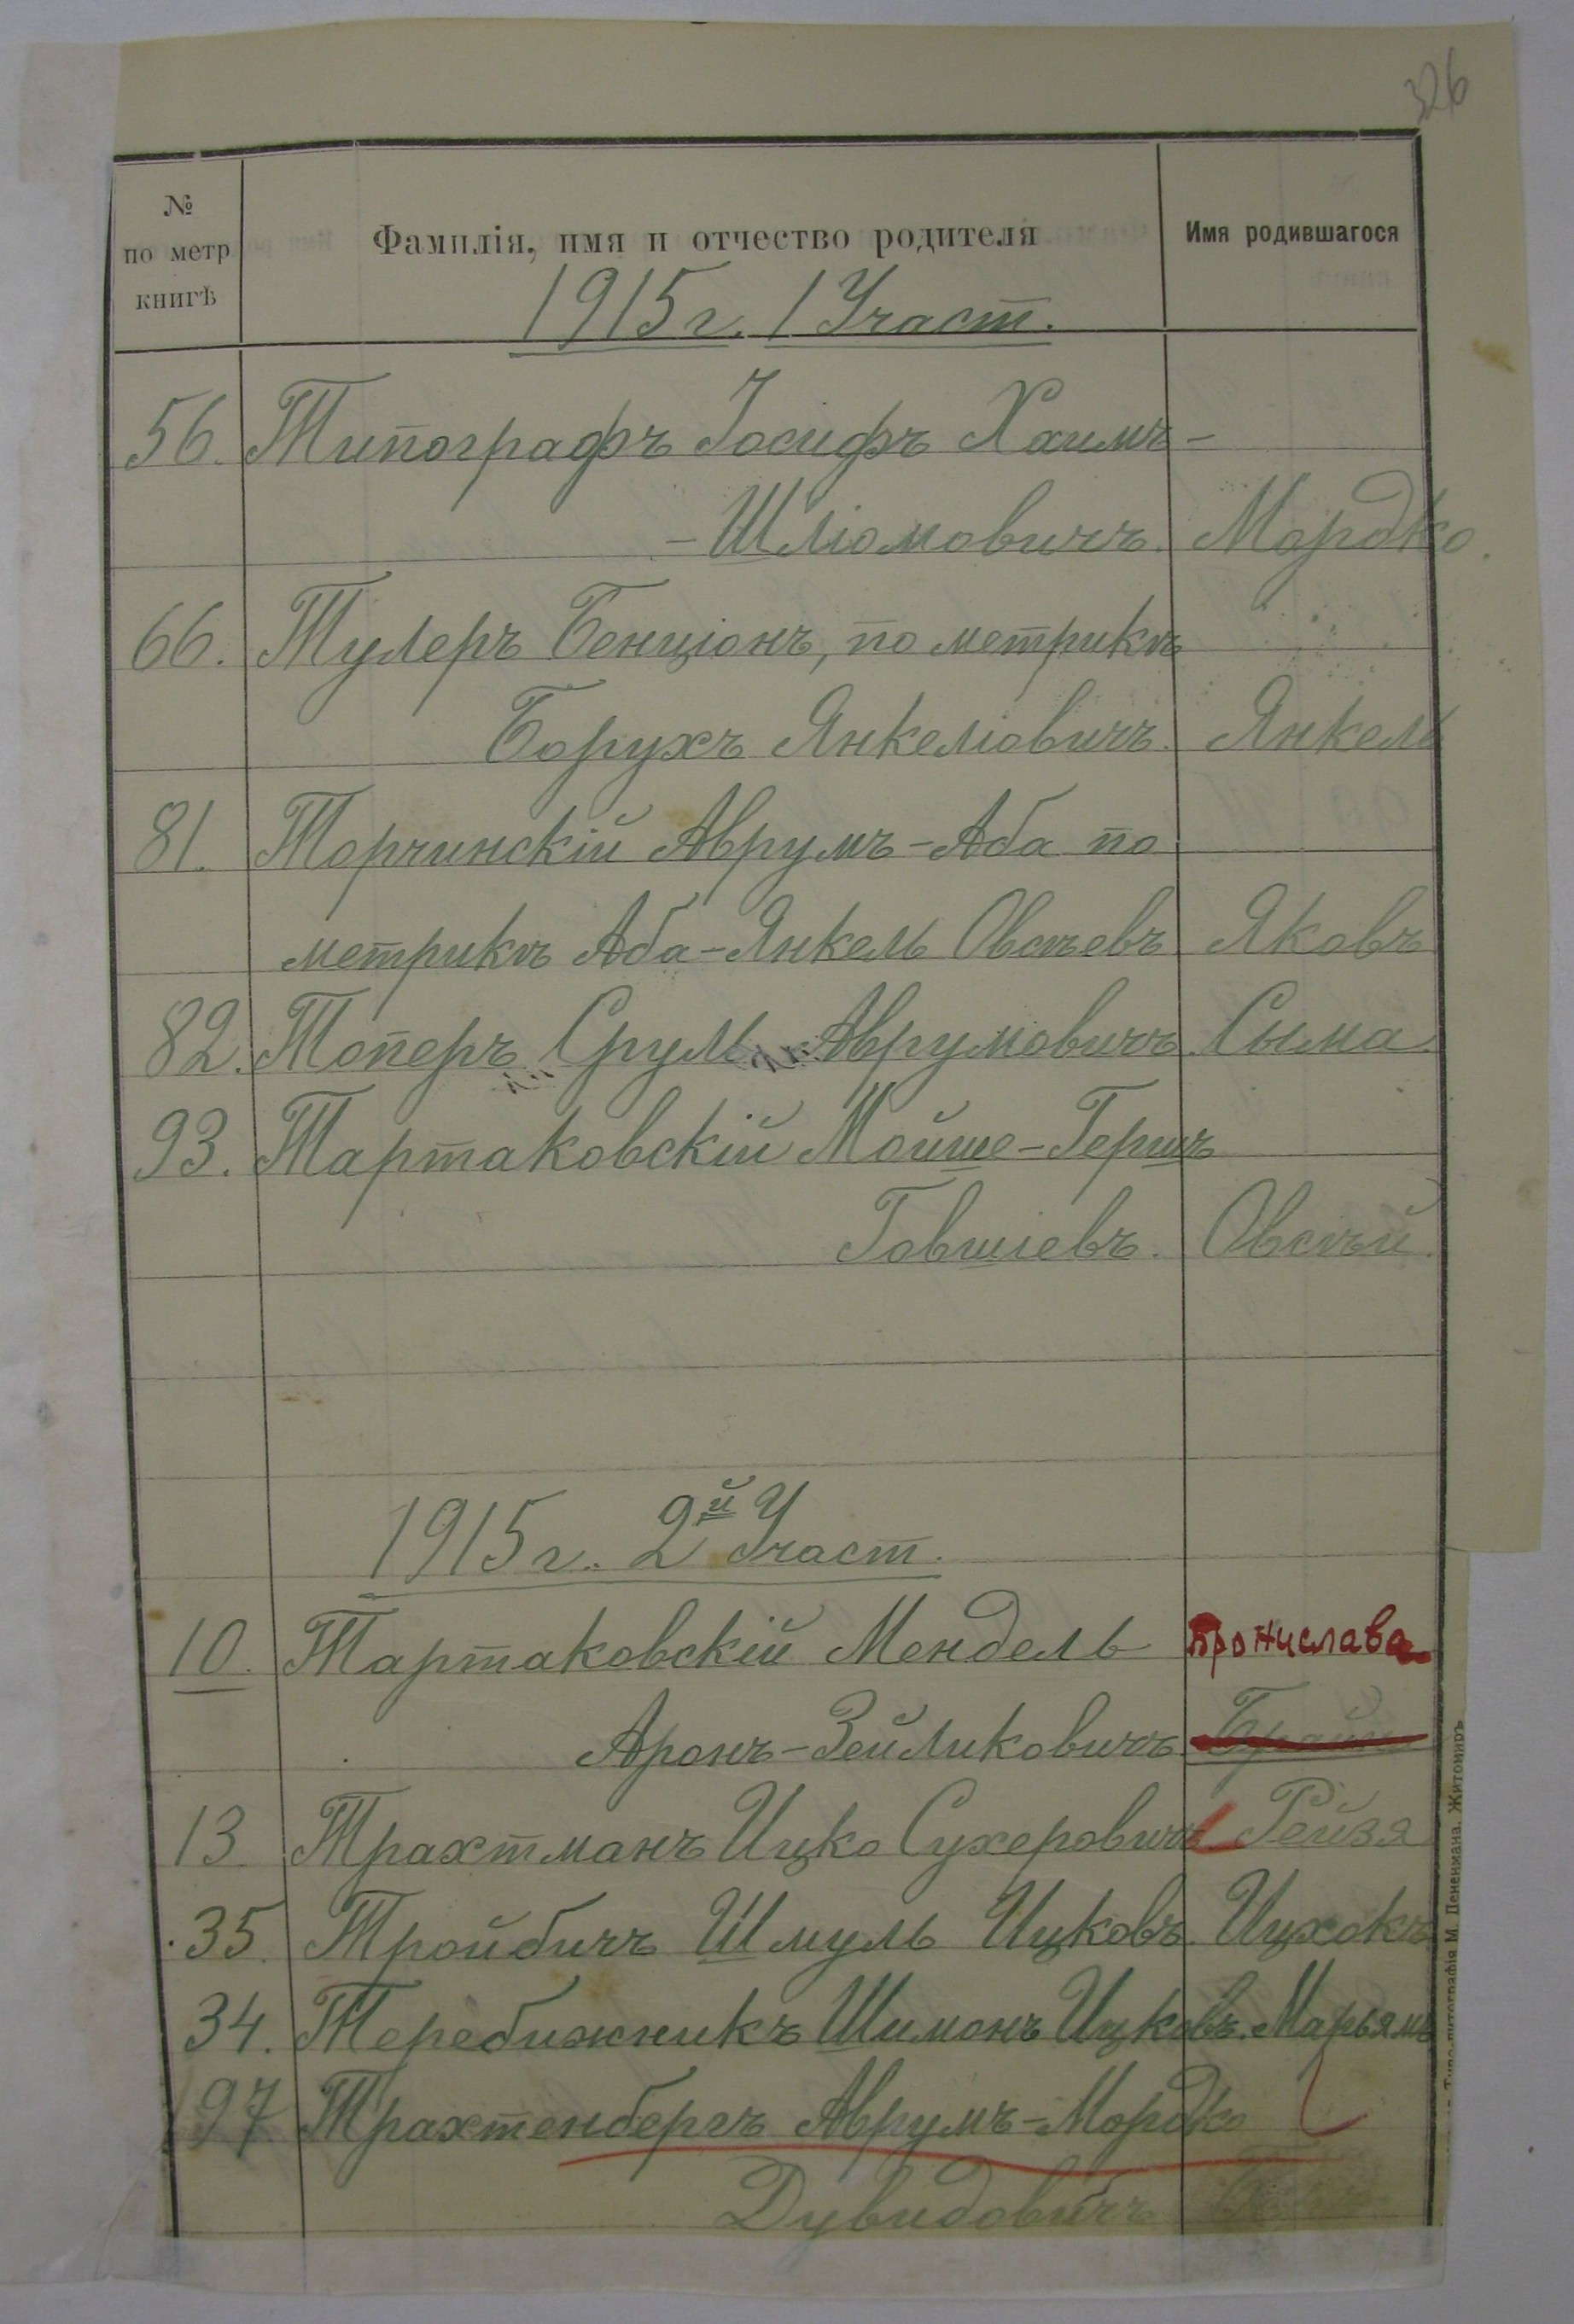 326
№ по метр книгѣ
Фамилія, имя и отчество родителя
Имя родившагося
1915 г. 1 Участ.
56. Типографъ Іосифъ Хаимъ-
-Шліомовичъ. Мордко.
66. Тулеръ Бенціонъ, по метрикѣ
Борухъ Янкеліовичъ. Янкель
81. Торчинскій Аврумъ-Аба по
метрикѣ Аба-Янкель Овсѣевъ. Яковъ
82. Топеръ Сруль Аврумовичъ. Сыма.
93. Тартаковскій Мойше-Гершъ
Говшіевъ. Овсѣй.
1915 г. 2й Участ.
10. Тартаковскій Мендель Бронислава
Аронъ-Зейликовичъ
13 Трахтманъ Ицко Сухеровичъ Рейзя
35 Тройбичъ Шмуль Ицковъ. Ицхокъ
34. Теребижникъ Шимонъ Ицковъ. Марьямъ
97. Трахтенбергъ Аврумъ-Мордко
Дувидовичъ
Типо-литографія М. Дененмана. Житомиръ